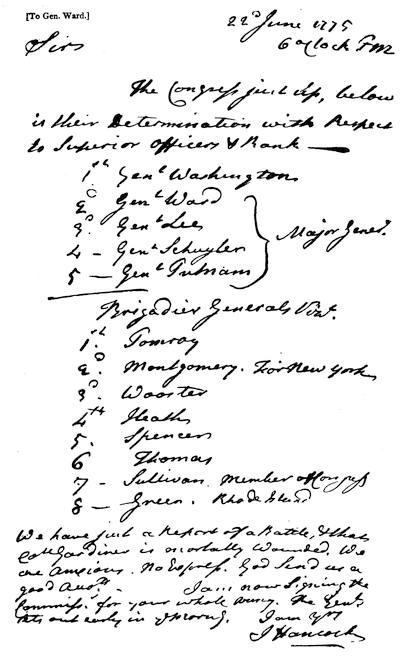 [To Gen. Ward.]
22d June 1775
6 oClock P.M
Sirs
The Congress just up, below
is their Determination with Respect
to Superior officers & Rank —
1st Genl Washington
2d Genl Ward
3d Genl Lee
4 - Genl Schuyler
5 — Genl Putnam
Major Generls
Brigadier Generals Vizt.
1st. Pomroy
2d. Montgomery. For New York
3d. Wooster
4th Heath
5. Spencer
6 Thomas
7 - Sullivan. Member of Congss
8 — Green. Rhode Island
We have just a Report of a Battle, & that
Coll Gardiner is mortally Wounded. We
are anxious. No Express. God Send us a
good Acct. I am now Signing the
Commiss. for your whole army. The Genl
sets out early in ye Morng. I am Yrs
J Hancock